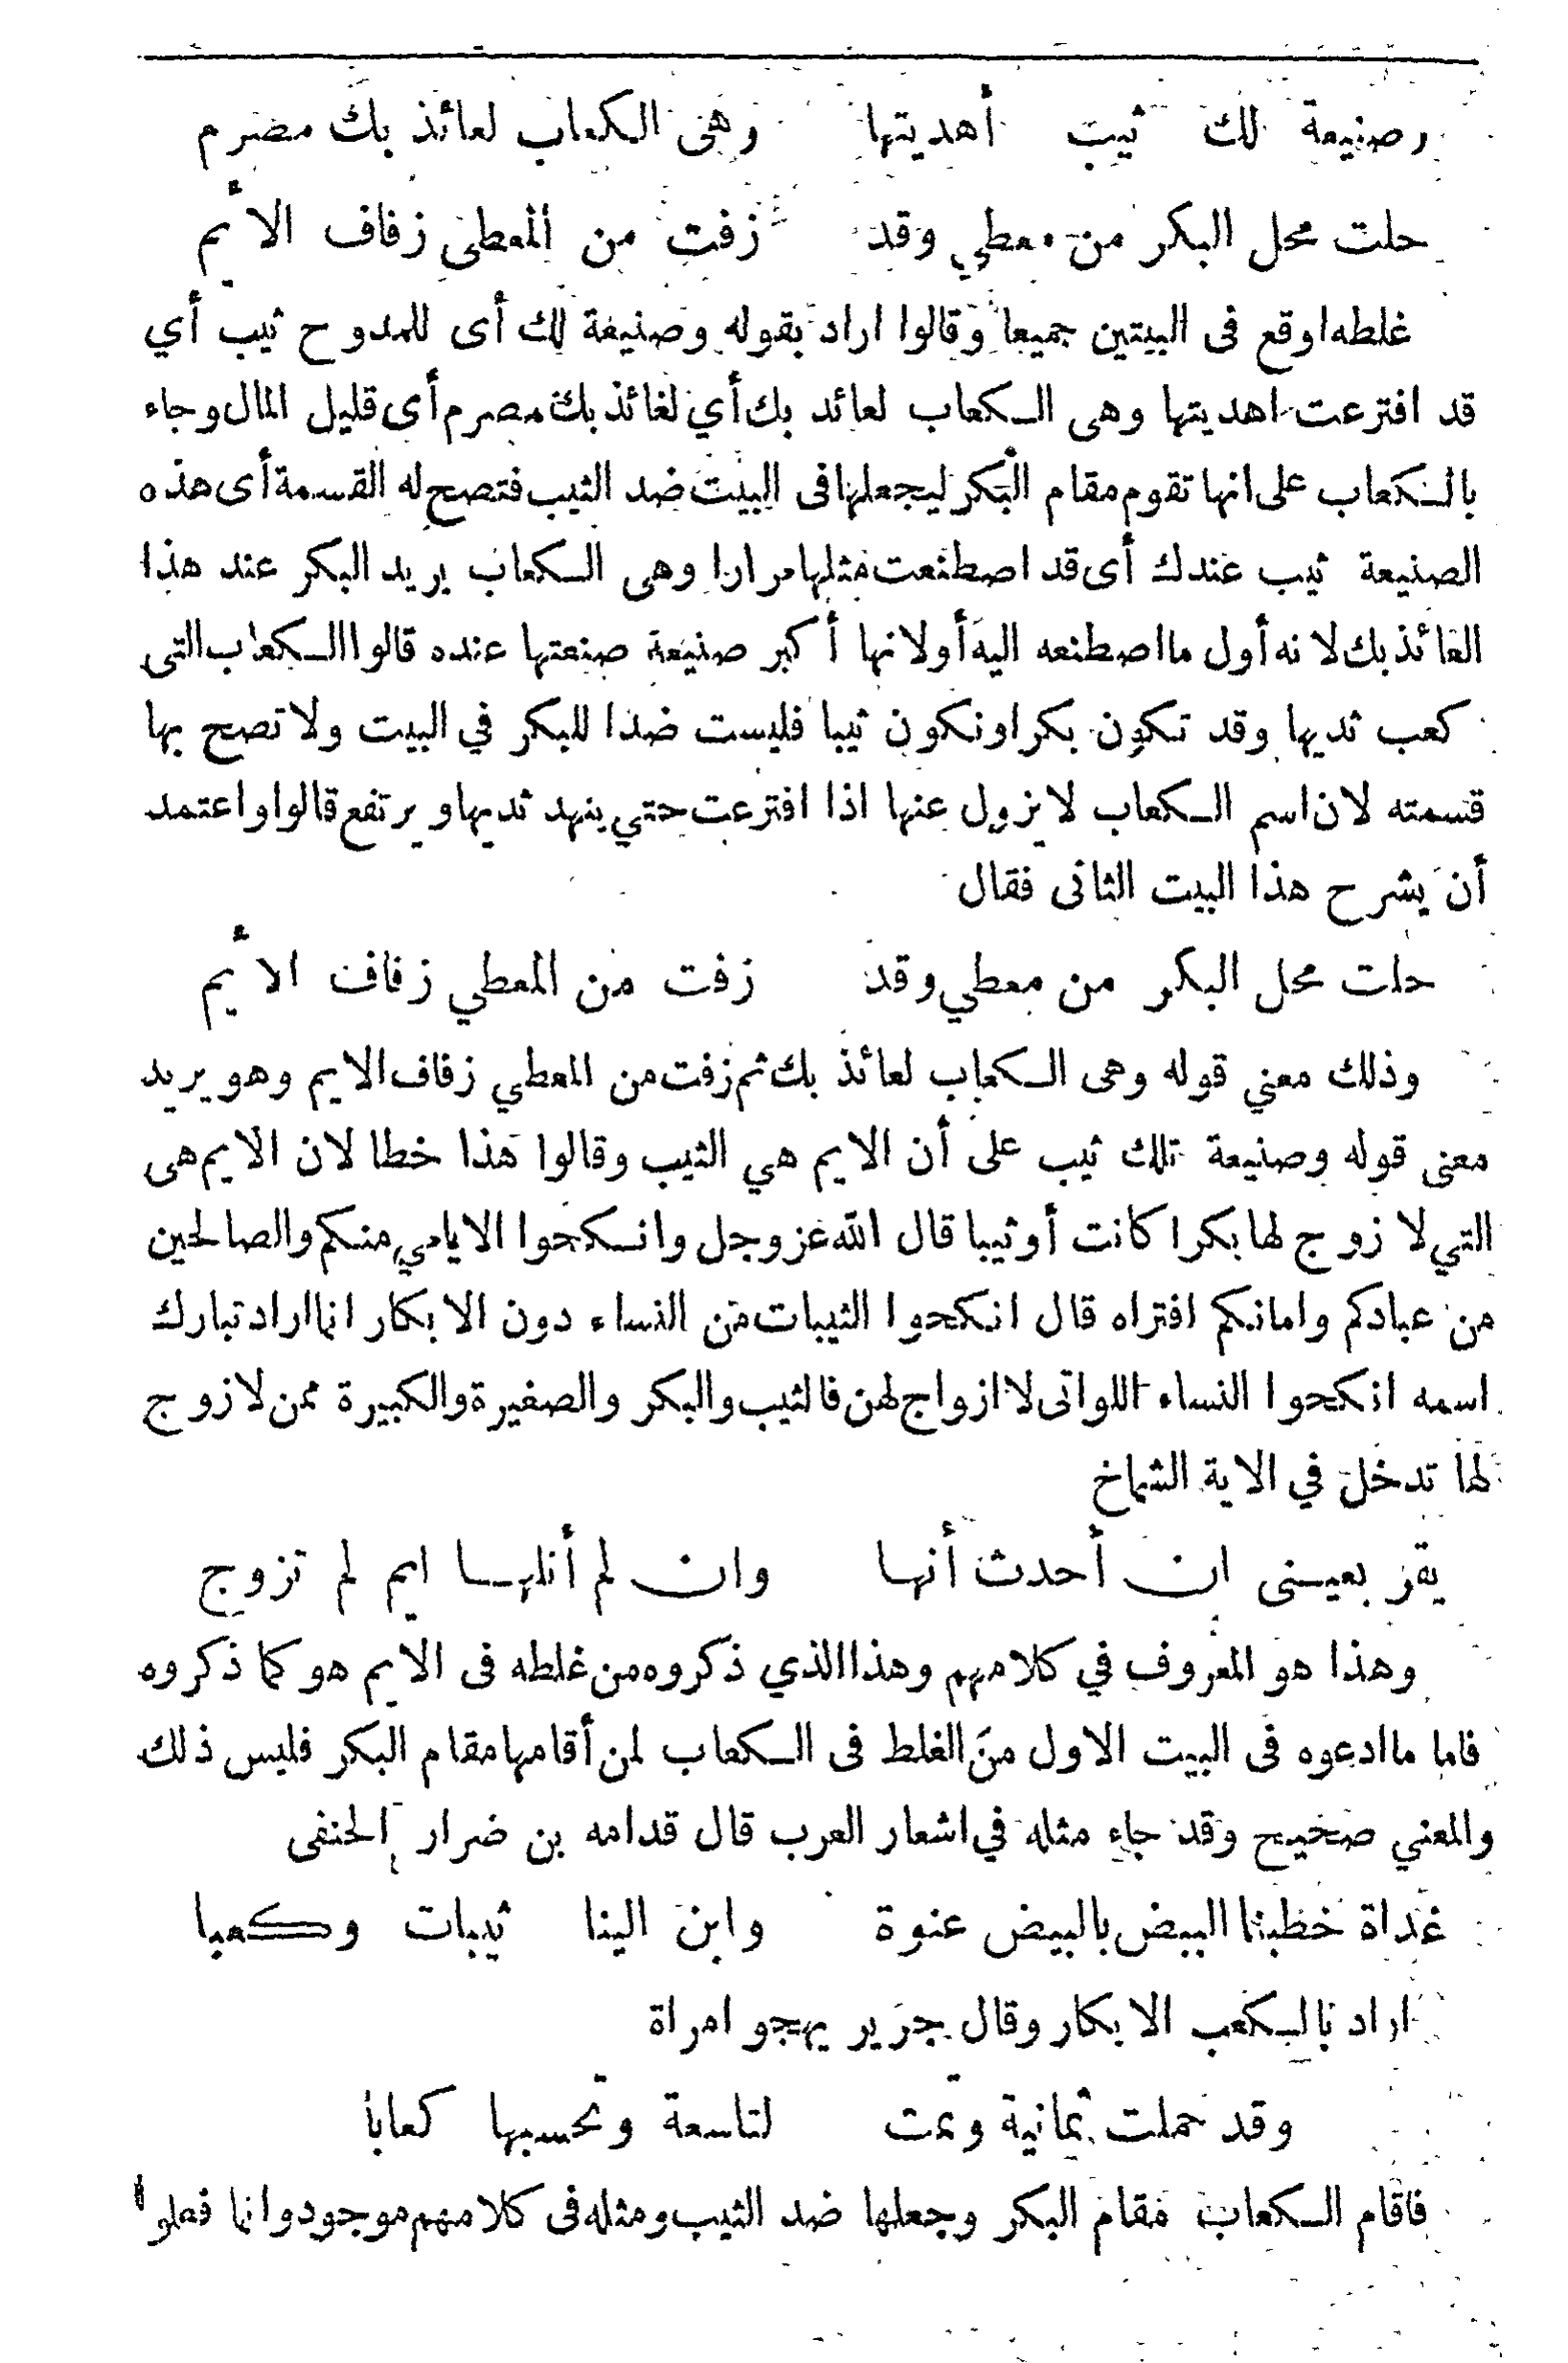 وصنيعة لك ثيب أهديتها وهى الكعاب لعائذ بك مضرم
حلت محل البكر من معطي وقد زفت من المعطى زفاف الأيم
غلطه اوقع فى البيتين جميعا وقالوا اراد بقوله وصنيعة لك أى للمدوح ثيب أي
قد افترعت اهديتها وهى الكعاب لعائد بك أي لعائذ بك مصرم أى قليل المال وجاء
بالكعاب على انها تقوم مقام البكر ليجعلها فى البيت ضد الثيب فتصح له القسمة أى هذه
الصنيعة ثيب عندك أى قد اصطنعت مثلها مرارا وهى الكعاب يريد البكر عند هذا
العائذ بك لانه أول ما اصطنعه اليه أولانها أكبر صنيعة صنعتها عنده قالوا الكعاب التى
كعب ثديها وقد تكون بكرا وتكون ثيبا فليست ضدا للبكر في البيت ولا تصح بها
قسمته لان اسم الكعاب لا يزول عنها اذا افترعت حتي ينهد ثديها ويرتفع قالوا واعتمد
أن يشرح هذا البيت الثانى فقال
حلت محل البكر من معطي وقد زفت من المعطي زفاف الأيم
وذلك معني قوله وهى الكعاب لعائذ بك ثم زفت من المعطي زفاف الايم وهو يريد
معنى قوله وصنيعة تلك ثيب على أن الايم هي الثيب وقالوا هذا خطا لان الايم هى
التي لا زوج لها بكرا كانت أو ثيبا قال الله عز وجل وانكحوا الايامي منكم والصالحين
من عبادكم وامائكم افتراه قال انكحوا الثيبات من النساء دون الابكار انما اراد تبارك
اسمه انكحوا النساء اللواتى لا ازواج لهن فالثيب والبكر والصغيرة والكبيرة ممن لا زوج
لها تدخل في الاية الشماخ
يقر بعينى ان أحدث أنها وان لم أنلها ايم لم تزوج
وهذا هو المعروف في كلامهم وهذا الذي ذكروه من غلطه فى الايم هو كما ذكروه
فاما ما ادعوه فى البيت الاول من الغلط فى الكعاب لمن أقامها مقام البكر فليس ذلك
والمعني صحيح وقد جاء مثله في اشعار العرب قال قدامه بن ضرار الحنفى
غداة خطبنا البيض بالبيض عنوة وابن الينا ثيبات وكعبا
اراد بالكعب الابكار وقال جرير يهجو امراة
وقد حملت ثمانية وتمت لتاسعة وتحسبها كعابا
فاقام الكعاب مقام البكر وجعلها ضد الثيب ومثله فى كلامهم موجود وانما فعلوا